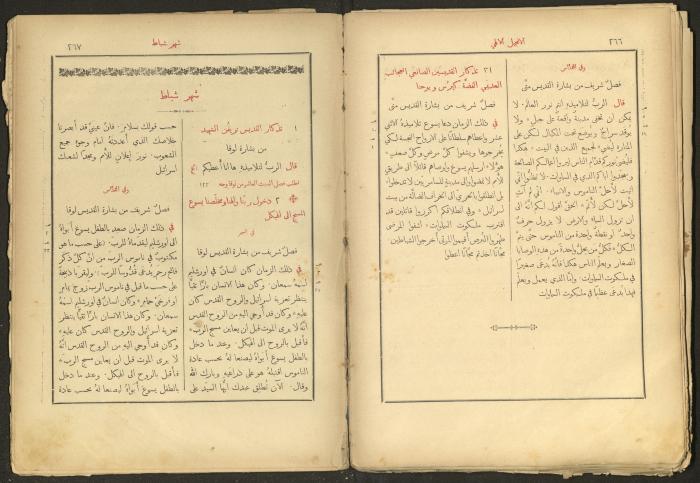 ٢٦٦
الانجيل الالهي
وفي القداس
فصل شريف من بشارة متى
قال الرب لتلاميذه انتم نور العالم. لا
يمكن ان تخفى مدينة واقعة على جبل* ولا
يوقد سراج ويوضع تحت المكيال لكن على
المنارة ليضيء لجميع الذين في البيت*
فليضئ نوركم قدام الناس ليروا اعمالكم الصالحة
ويمجدوا اباكم الذي في السماوات* لا تظنوا اني
اتيت لأحل الناموس والانبياء. اني لم آت
لأحل لكن لأتمم* الحق اقول لكم انه الى
ان تزول السماء والارض لا يزول حرف
واحد او نقطة واحدة من الناموس حتى يتم
الكل* فكل من يحل واحدة من هذه الوصايا
الصغار ويعلم الناس هكذا فانه يدعى صغيرا
في ملكوت السماوات. واما الذي يعمل ويعلم
فهذا يدعى عظيما في ملكوت السماوات
٣١ تذكار القديسين الصانعي العجائب
العديمي الفضة كيرس ويوحنا
فصل شريف من بشارة القديس متى
في ذلك الزمان دعا يسوع تلاميذه الاثني
عشر واعطاهم سلطانا على الارواح النجسة لكي
يخرجوها ويشفوا كل مرض وكل ضعف*
هؤلاء ارسلهم يسوع واوصاهم قائلا الى طريق
الامم لا تمضوا والى مدينة للسامريين لا تدخلوا*
بل انطلقوا بالحري الى الخراف الضالة من بيت
اسرائيل* وفي انطلاقكم اكرزوا قائلين قد
اقترب ملكوت السماوات* اشفوا المرضى
طهروا البرص أقيموا الموتى أخرجوا الشياطين
مجانا اخذتم مجانا أعطوا
شهر شباط
٢٦٧
شهر شباط
١ تذكار القديس تريفن الشهيد
من بشارة لوقا
قال الرب لتلاميذه هاءنذا أعطيكم الخ
اطلب فصل السبت العاشر من لوقا وجه ١٢٢
٢ دخول ربنا والهنا ومخلصنا يسوع
المسيح الى الهيكل
في السحر
فصل شريف من بشارة القديس لوقا
في ذلك الزمان كان انسان في اورشليم
اسمه سمعان. وكان هذا الانسان بارا تقيا
ينتظر تعزية اسرائيل والروح القدس كان
عليه* وكان قد أوحي اليه من الروح القدس
انه لا يرى الموت قبل ان يعاين مسيح الرب*
فأقبل بالروح الى الهيكل. وعند ما دخل
بالطفل يسوع أبواه ليصنعا له بحسب عادة
الناموس اقتبله هو على ذراعيه وبارك الله
وقال. الآن تطلق عبدك ايها السيد على
حسب قولك بسلام. فان عيني قد أبصرتا
خلاصك الذي أعددته امام وجوه جميع
الشعوب. نور إعلان للأمم ومجدا لشعبك
اسرائيل
وفي القداس
فصل شريف من بشارة القديس لوقا
في ذلك الزمان صعد بالطفل يسوع أبواه
الى اورشليم ليقدماه للرب. (على حسب ما هو
مكتوب في ناموس الرب من ان كل ذكر
فاتح رحم يدعى قدوسا للرب)* وليقربا ذبيحة
على حسب ما قيل في ناموس الرب زوج يمام
او فرخي حمام* وكان انسان في اورشليم اسمه
سمعان. وكان هذا الانسان بارا تقيا ينتظر
تعزية اسرائيل والروح القدس كان عليه*
وكان قد أوحي اليه من الروح القدس انه
لا يرى الموت قبل ان يعاين مسيح الرب*
فأقبل بالروح الى الهيكل. وعند ما دخل
بالطفل يسوع أبواه ليصنعا له بحسب عادة